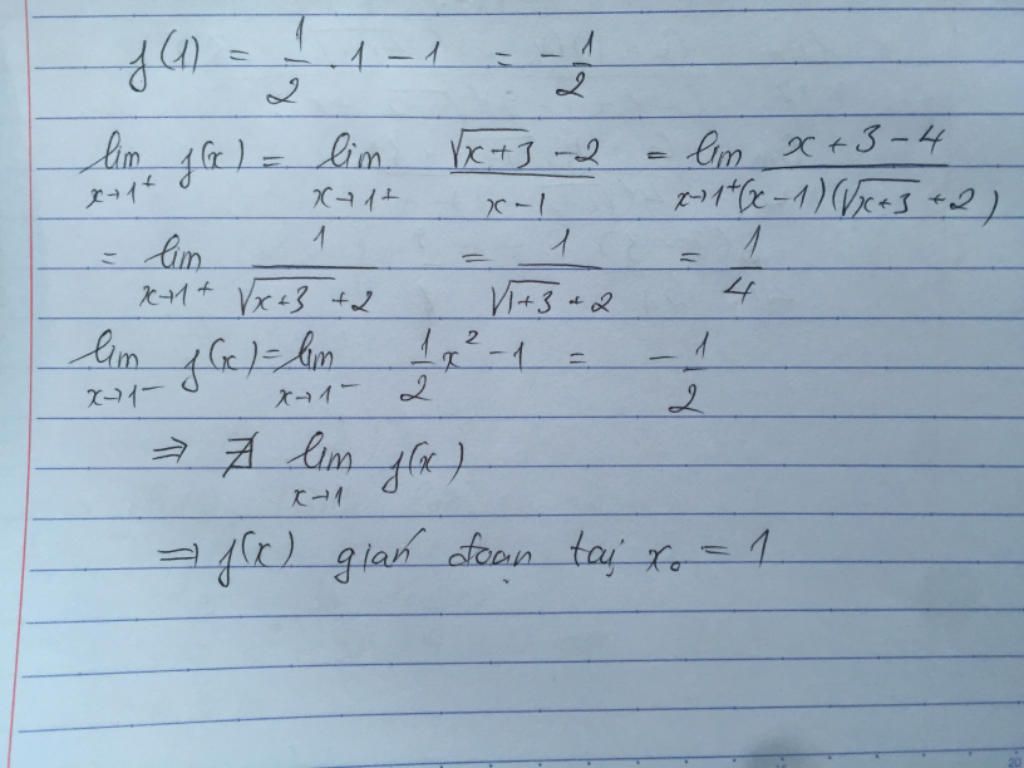 f(1) = 1/2 . 1 - 1 = -1/2
lim x→1⁺ f(x) = lim x→1⁺ (√(x+3) - 2)/(x-1) = lim x→1⁺ (x+3-4)/((x-1)(√(x+3) + 2))
= lim x→1⁺ 1/(√(x+3) + 2) = 1/(√(1+3) + 2) = 1/4
lim x→1⁻ f(x) = lim x→1⁻ 1/2 x² - 1 = -1/2
⇒ ∄ lim x→1 f(x)
⇒ f(x) gián đoạn tại x₀ = 1